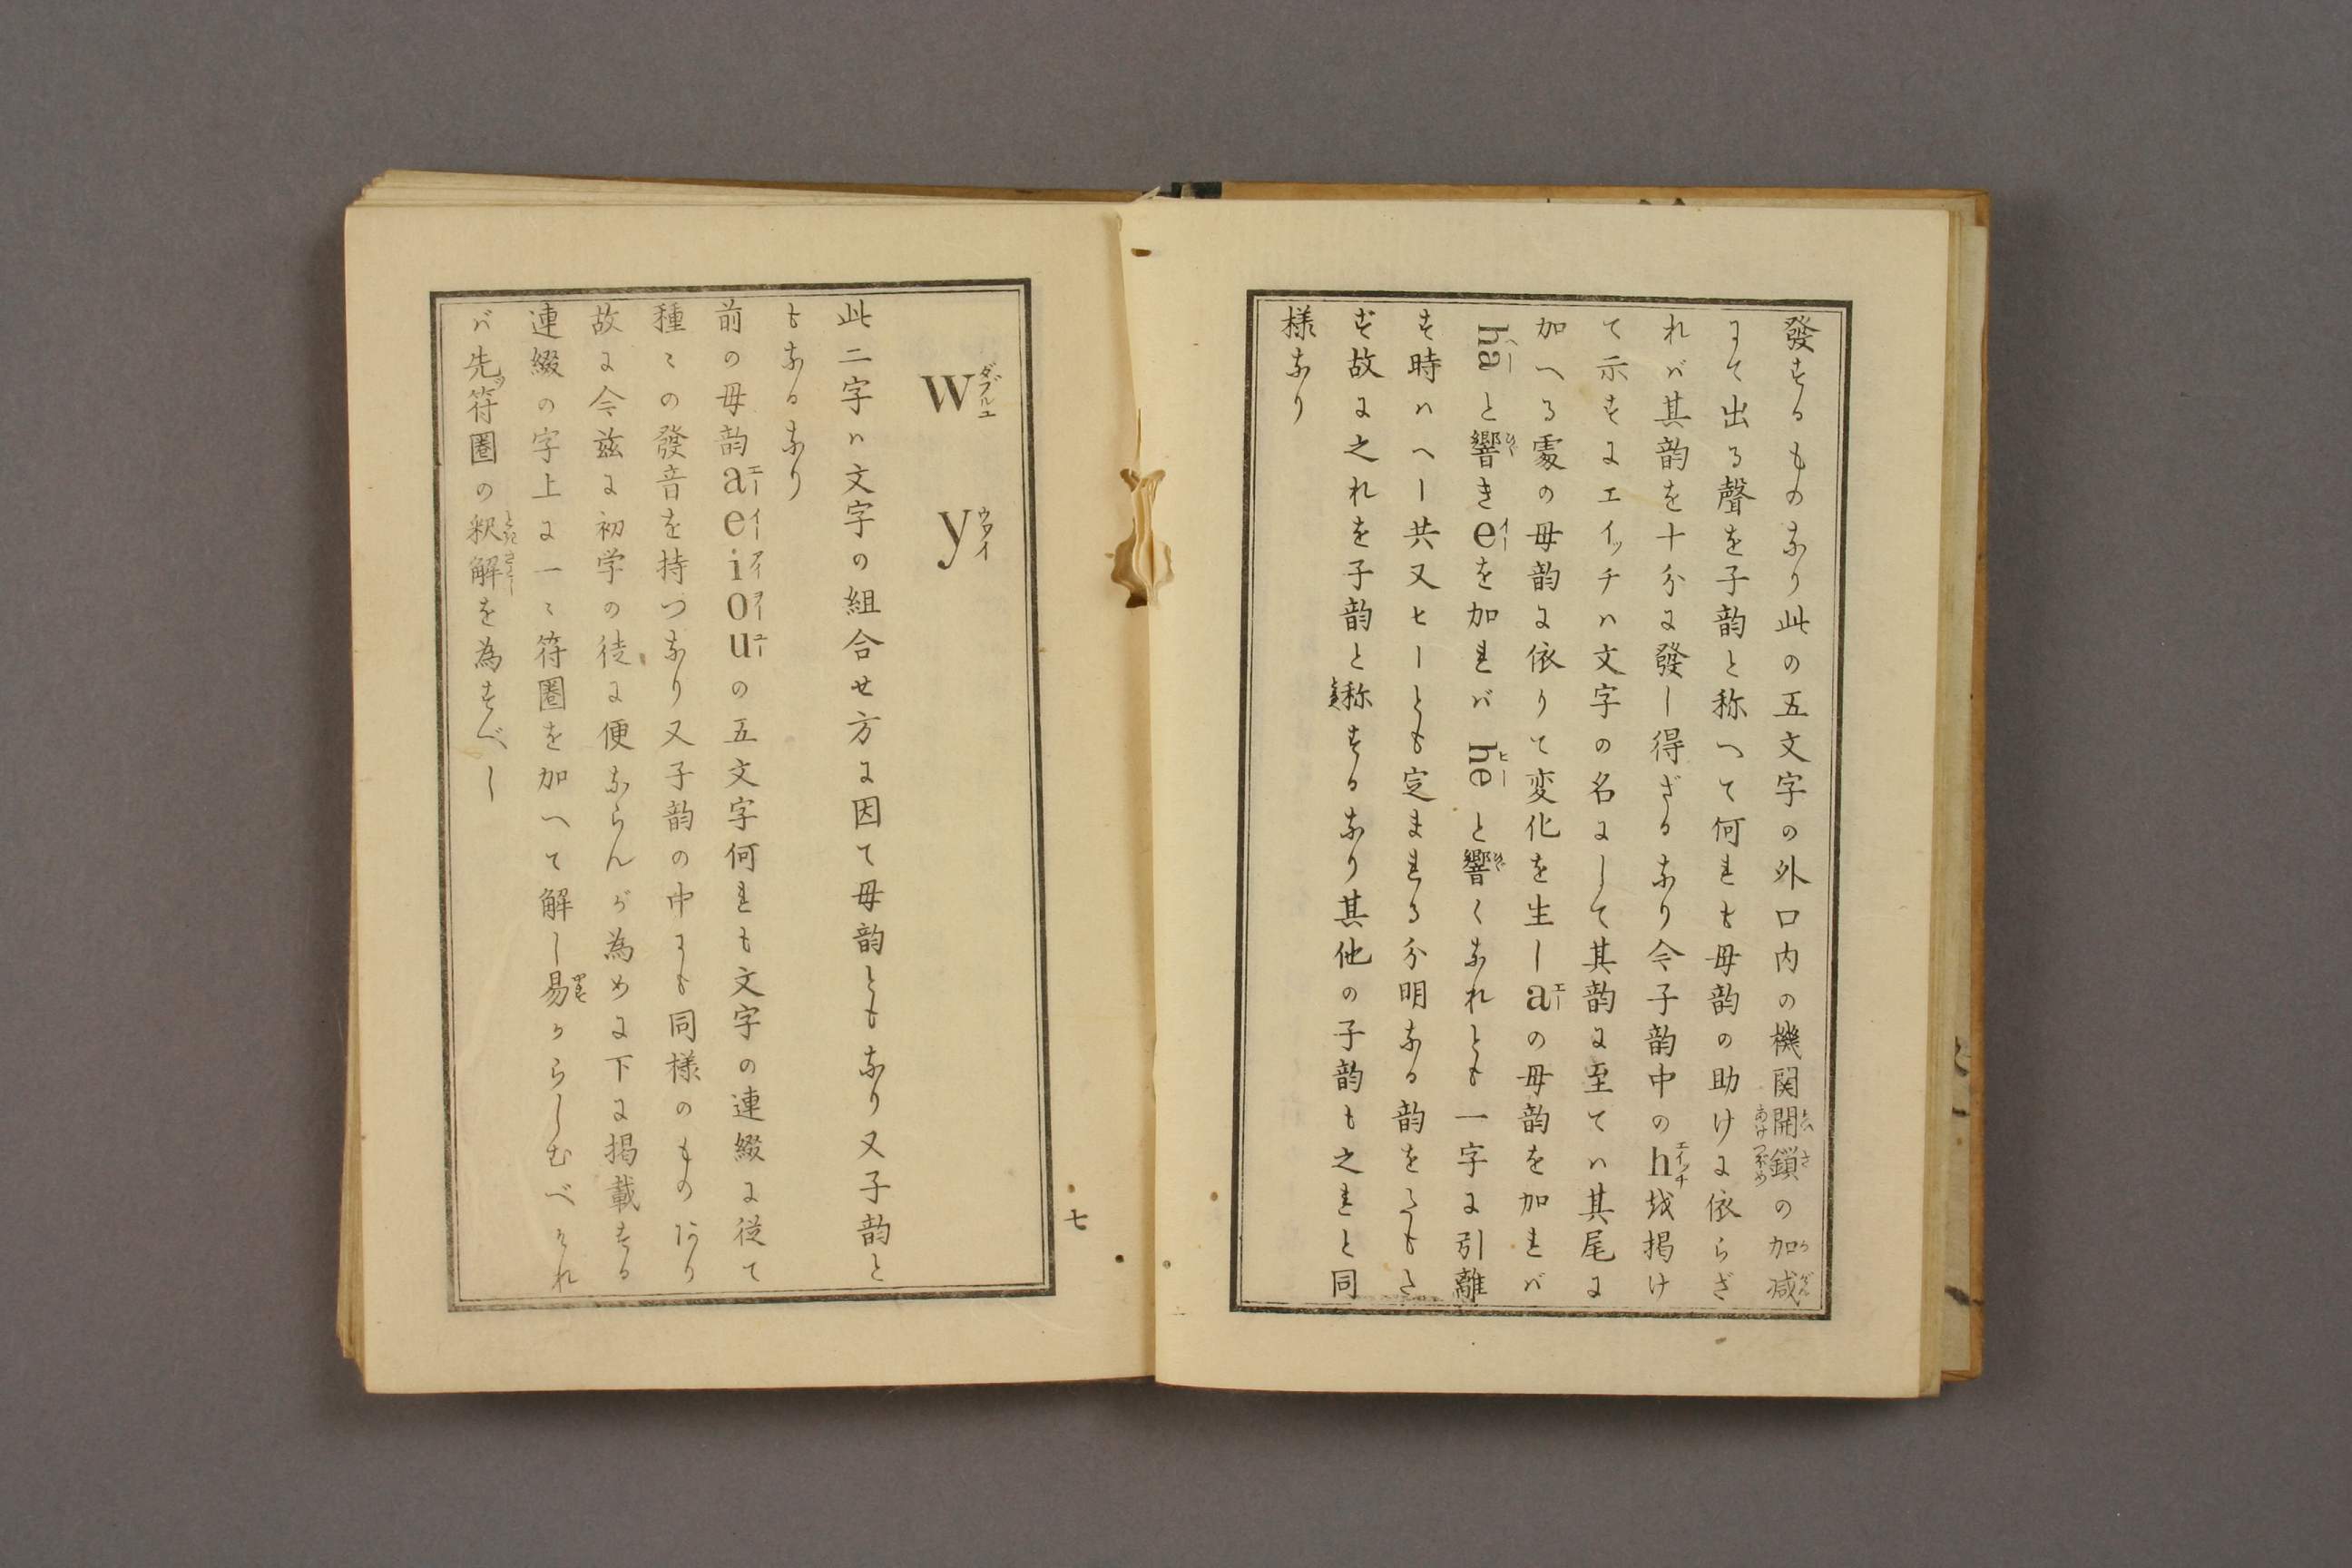 發するものなり此の五文字の外口内の機関開鎖の加减
にて出る聲を子韵と称へて何れも母韵の助けに依らざ
れバ其韵を十分に發し得ざるなり今子韵中のh越掲け
て示すにエイッチハ文字の名にして其韵に至てハ其尾に
加へる䖏の母韵に依りて変化を生しaの母韵を加れバ
haと響きeを加れバheと響くなれとも一字に引離
す時ハヘー共又ヒーとも定まれる分明なる韵をともさ
ず故に之れを子韵と称するなり其他の子韵も之れと同
様なり
w ダブルユ y ウワイ
此二字ハ文字の組合せ方に因て母韵ともなり又子韵と
もなるなり
前の母韵aエーeイーiアイoヲーuユーの五文字何れも文字の連綴に従て
種々の發音を持つなり又子韵の中にも同様のものあり
故に今茲に初学の徒に便ならんが為めに下に掲載する
連綴の字上に一々符圏を加へて解し易からしむべけれ
バ先符圏の釈解を為すべし
七